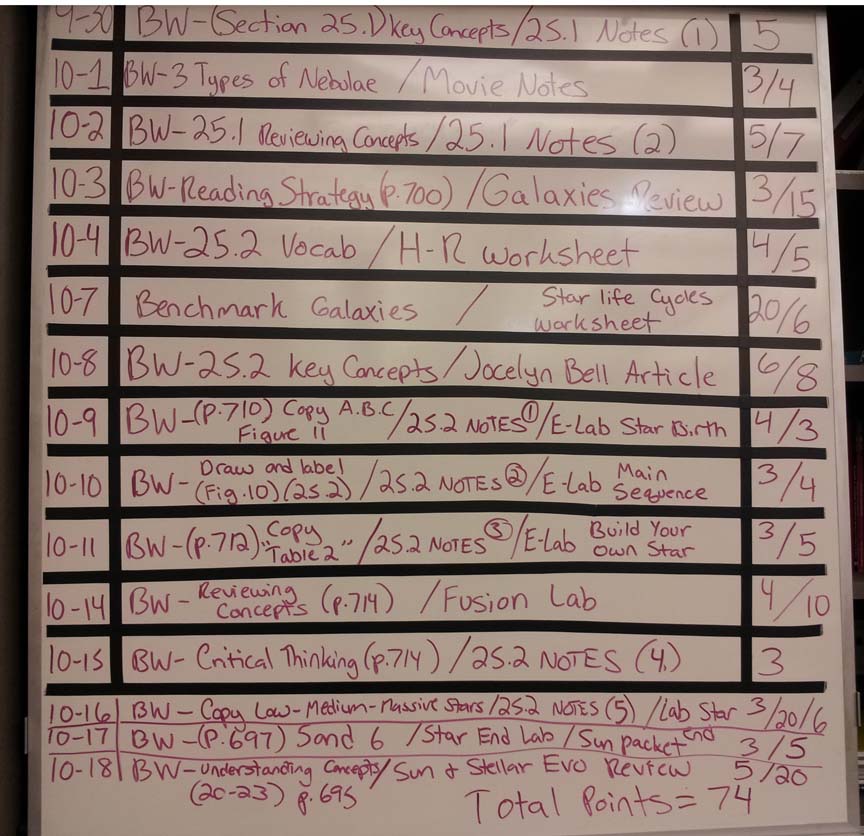 9-30 BW-(Section 25.1) Key Concepts/25.1 Notes (1) 5
10-1 BW-3 Types of Nebulae / Movie Notes 3/4
10-2 BW-25.1 Reviewing Concepts/25.1 Notes (2) 5/7
10-3 BW-Reading Strategy (p.700) / Galaxies Review 3/15
10-4 BW-25.2 Vocab / H-R worksheet 4/5
10-7 Benchmark Galaxies / Star life Cycles worksheet 20/6
10-8 BW-25.2 key Concepts/Jocelyn Bell Article 6/8
10-9 BW-(P.710) Copy A.B.C Figure 11 /25.2 NOTES ① /E-Lab Star Birth 4/3
10-10 BW- Draw and label (Fig.10)(25.2) /25.2 NOTES ② /E-Lab Main Sequence 3/4
10-11 BW-(p.712) "Copy Table 2" /25.2 NOTES ③ /E-Lab Build Your Own Star 3/5
10-14 BW- Reviewing Concepts (p.714) / Fusion Lab 4/10
10-15 BW- Critical Thinking (p.714) /25.2 NOTES (4.) 3
10-16 BW- Copy Low-Medium-Massive Stars/25.2 NOTES (5) /Lab Star 3/20/6
10-17 BW-(P.697) 5 and 6 /Star End Lab / Sun packet end 3/5
10-18 BW-Understanding Concepts/ Sun & Stellar Evo Review 5/20
(20-23) p.695
Total Points = 74